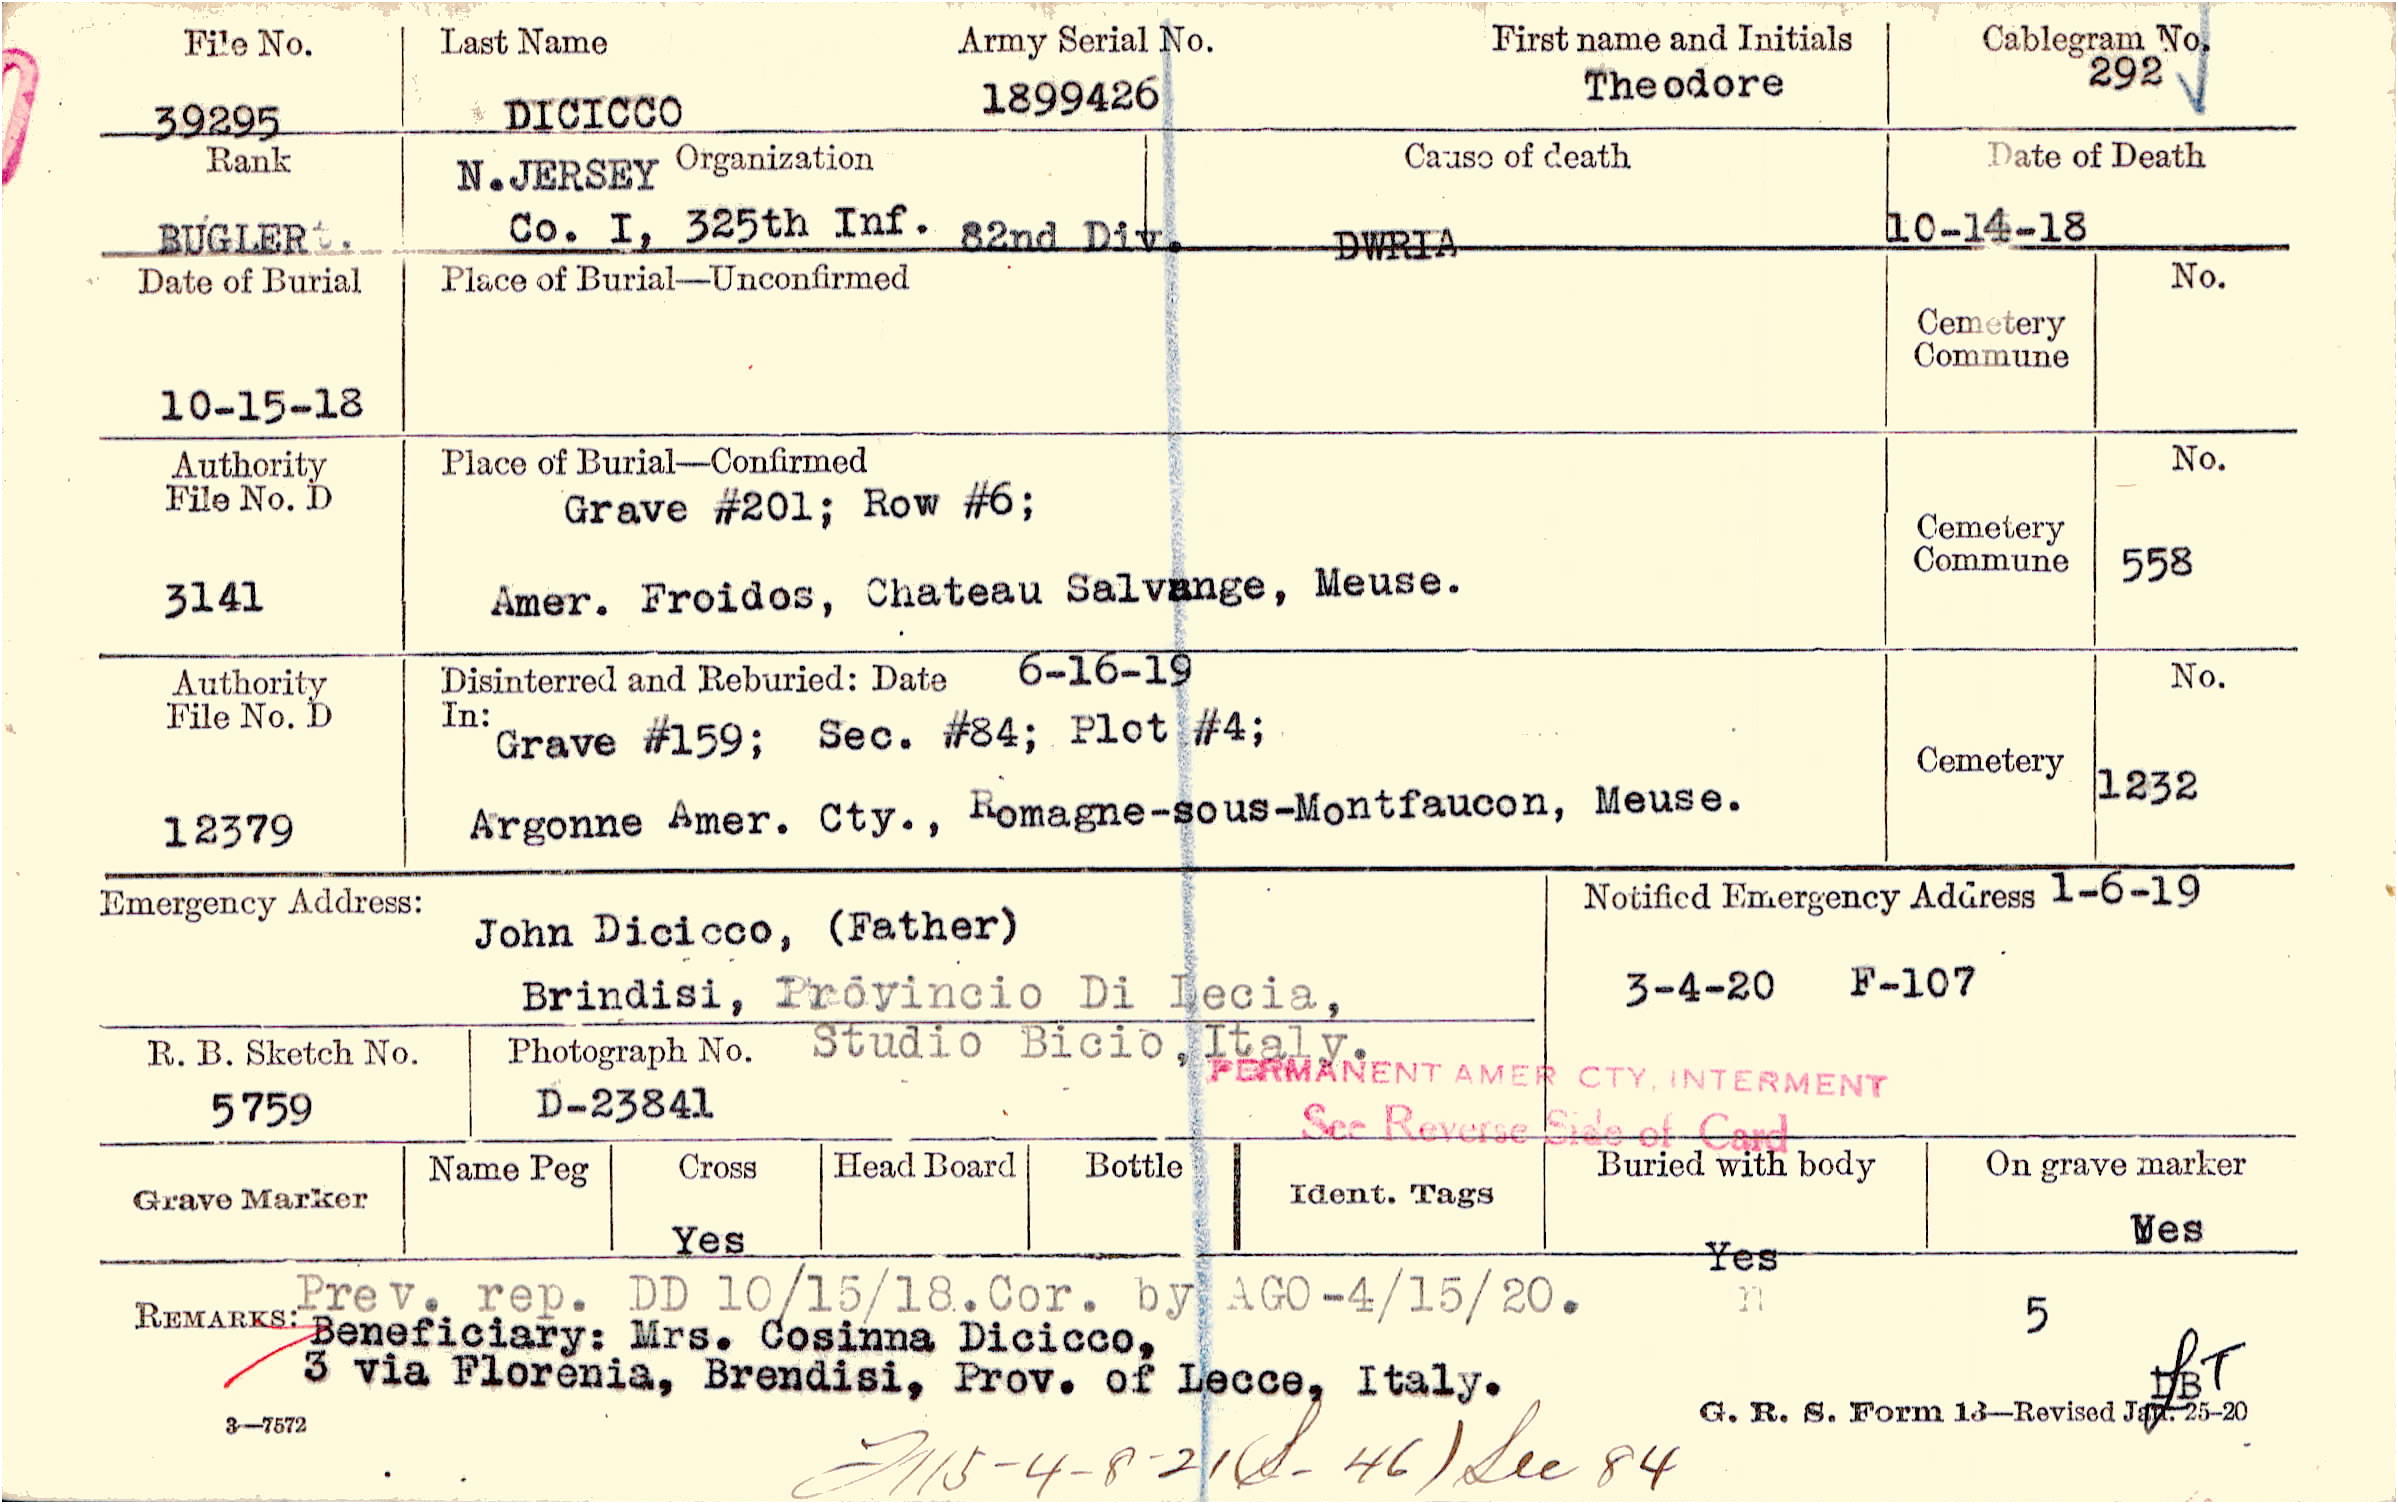 File No. Last Name Army Serial No. First name and Initials Cablegram No.
39295 DICICCO 1899426 Theodore 292
Rank N.JERSEY Organization Cause of death Date of Death
BUGLER Co. I, 325th Inf. 82nd Div. DWRIA 10-14-18
Date of Burial Place of Burial—Unconfirmed No.
Cemetery
Commune
10-15-18
Authority Place of Burial—Confirmed No.
File No. D Grave #201; Row #6;
Cemetery
Commune 558
3141 Amer. Froidos, Chateau Salvange, Meuse.
Authority Disinterred and Reburied: Date 6-16-19 No.
File No. D In: Grave #159; Sec. #84; Plot #4;
Cemetery 1232
12379 Argonne Amer. Cty., Romagne-sous-Montfaucon, Meuse.
Emergency Address: Notified Emergency Address 1-6-19
John Dicicco, (Father)
Brindisi, Provincio Di Lecia, 3-4-20 F-107
Studio Bicio, Italy.
R. B. Sketch No. Photograph No.
5759 D-23841
PERMANENT AMER CTY. INTERMENT
See Reverse Side of Card
Grave Marker Name Peg Cross Head Board Bottle Ident. Tags Buried with body On grave marker
Yes Yes Yes
REMARKS: Prev. rep. DD 10/15/18.Cor. by AGO-4/15/20. n 5
Beneficiary: Mrs. Cosinna Dicicco,
3 via Florenia, Brendisi, Prov. of Lecce, Italy.
3—7572 G. R. S. Form 13—Revised Jan. 25-20
115-4-8-21 (S- 46) Sec 84